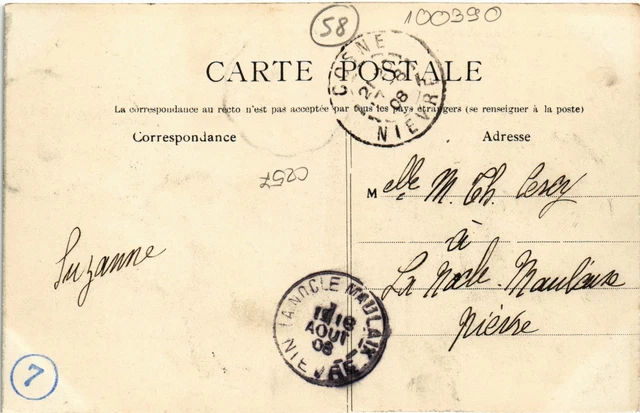 58
100390
COSNE
NIEVRE
08
CARTE POSTALE
La correspondance au recto n'est pas acceptée par tous les pays étrangers (se renseigner à la poste)
Correspondance
Adresse
0257
Melle M. Th.
à
La Nocle-Maulaix
Nièvre
Suzanne
LA NOCLE MAULAIX
18
AOUT
08
NIEVRE
7